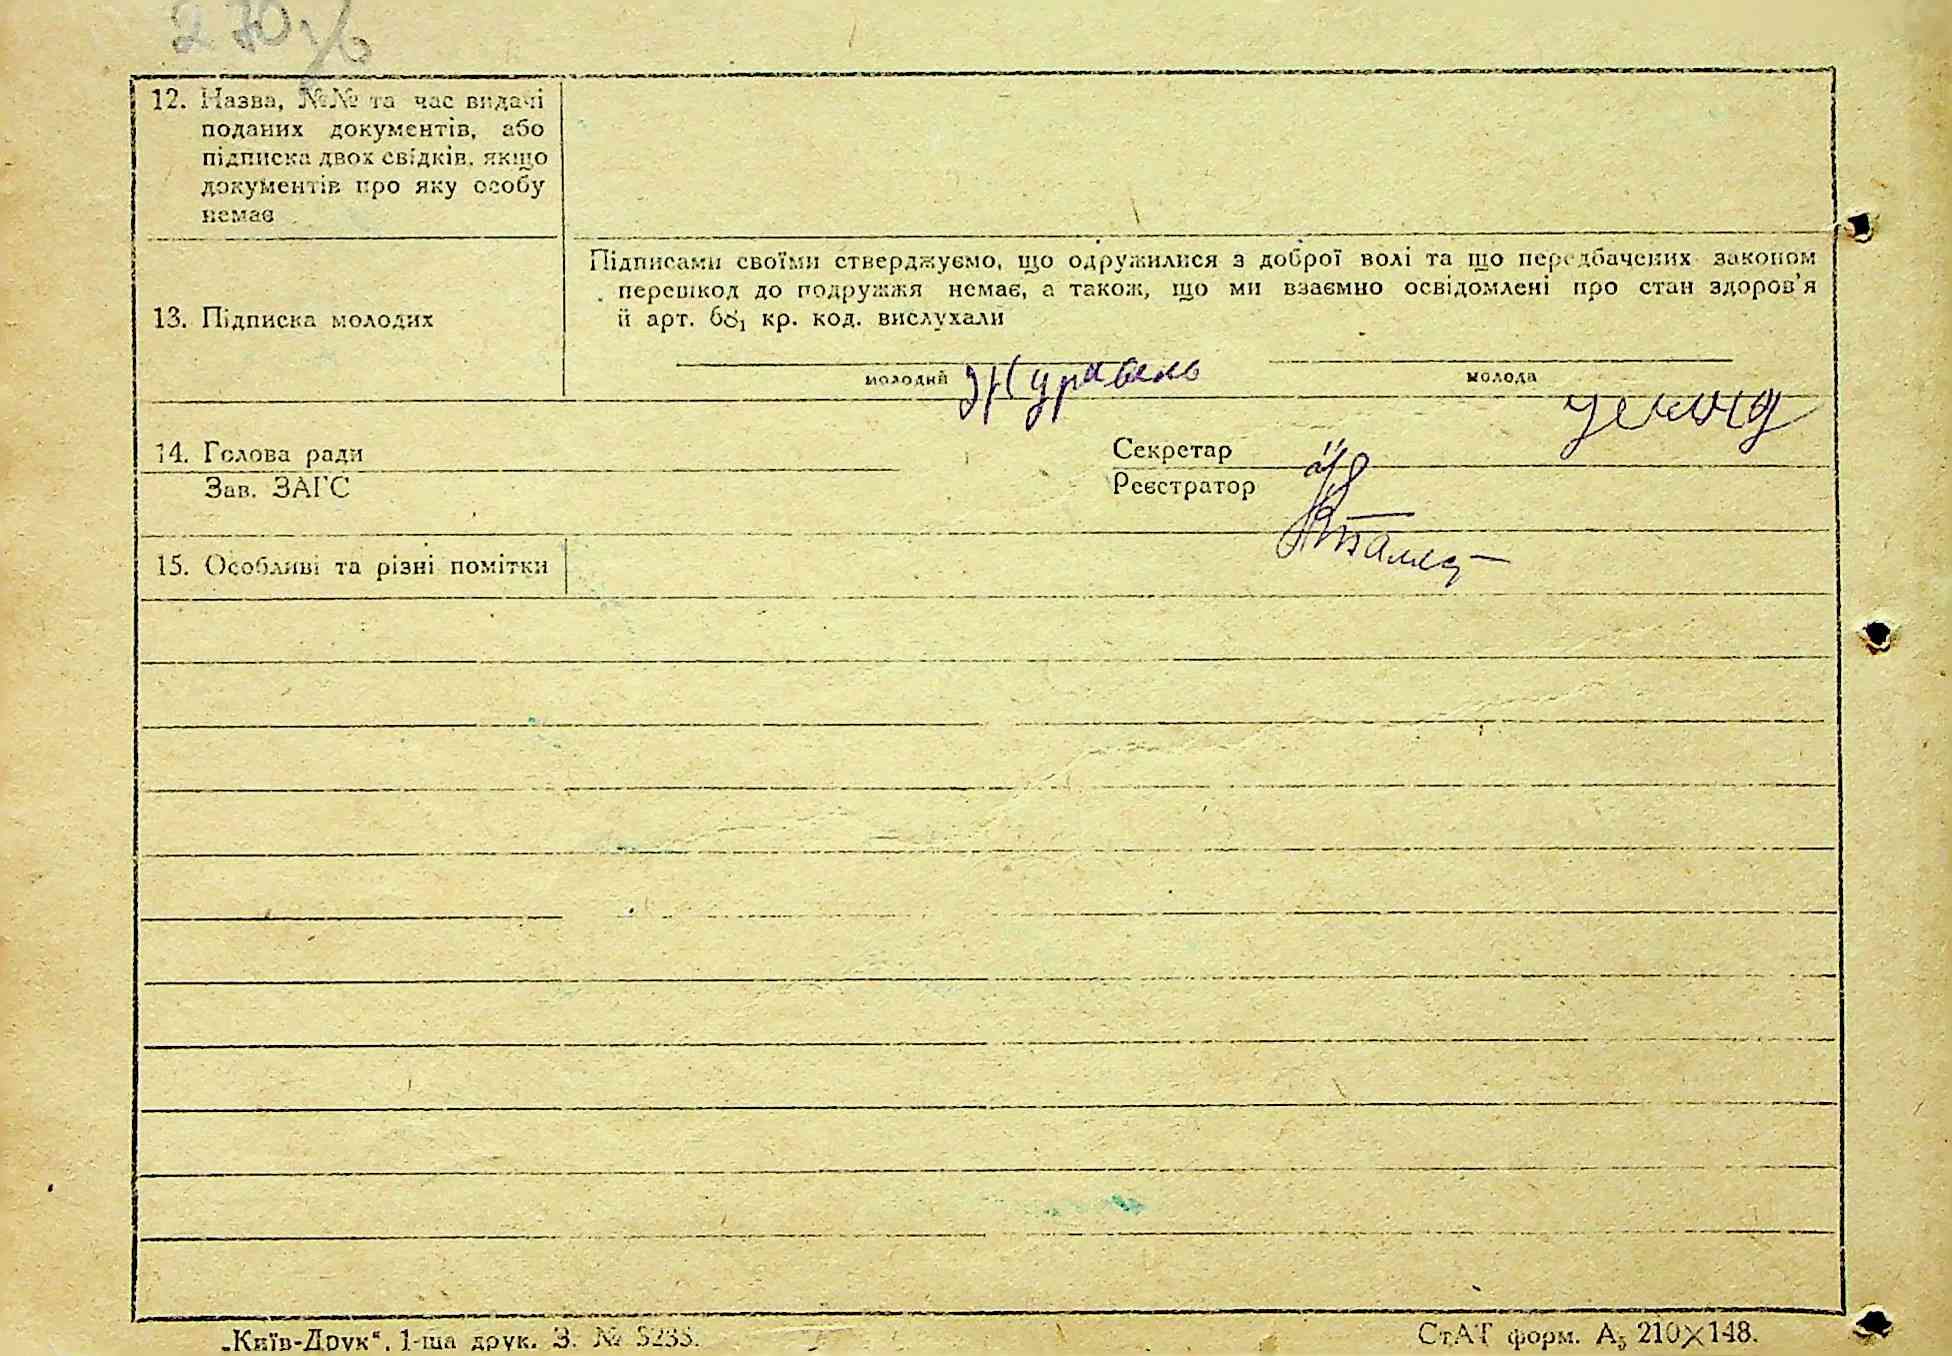 270
12. Назва, №№ та час видачі
поданих документів, або
підписка двох свідків, якщо
документів про яку особу
немає
13. Підписка молодих
Підписами своїми стверджуємо, що одружилися з доброї волі та що передбачених законом
перешкод до подружжя немає, а також, що ми взаємно освідомлені про стан здоров'я
й арт. 68₁ кр. код. вислухали
молодий Журавель
молода
14. Голова ради
Секретар
Зав. ЗАГС
Реєстратор
15. Особливі та різні помітки
„Київ-Друк". 1-ша друк. З. № 5235.
СтАТ форм. А₅ 210×148.